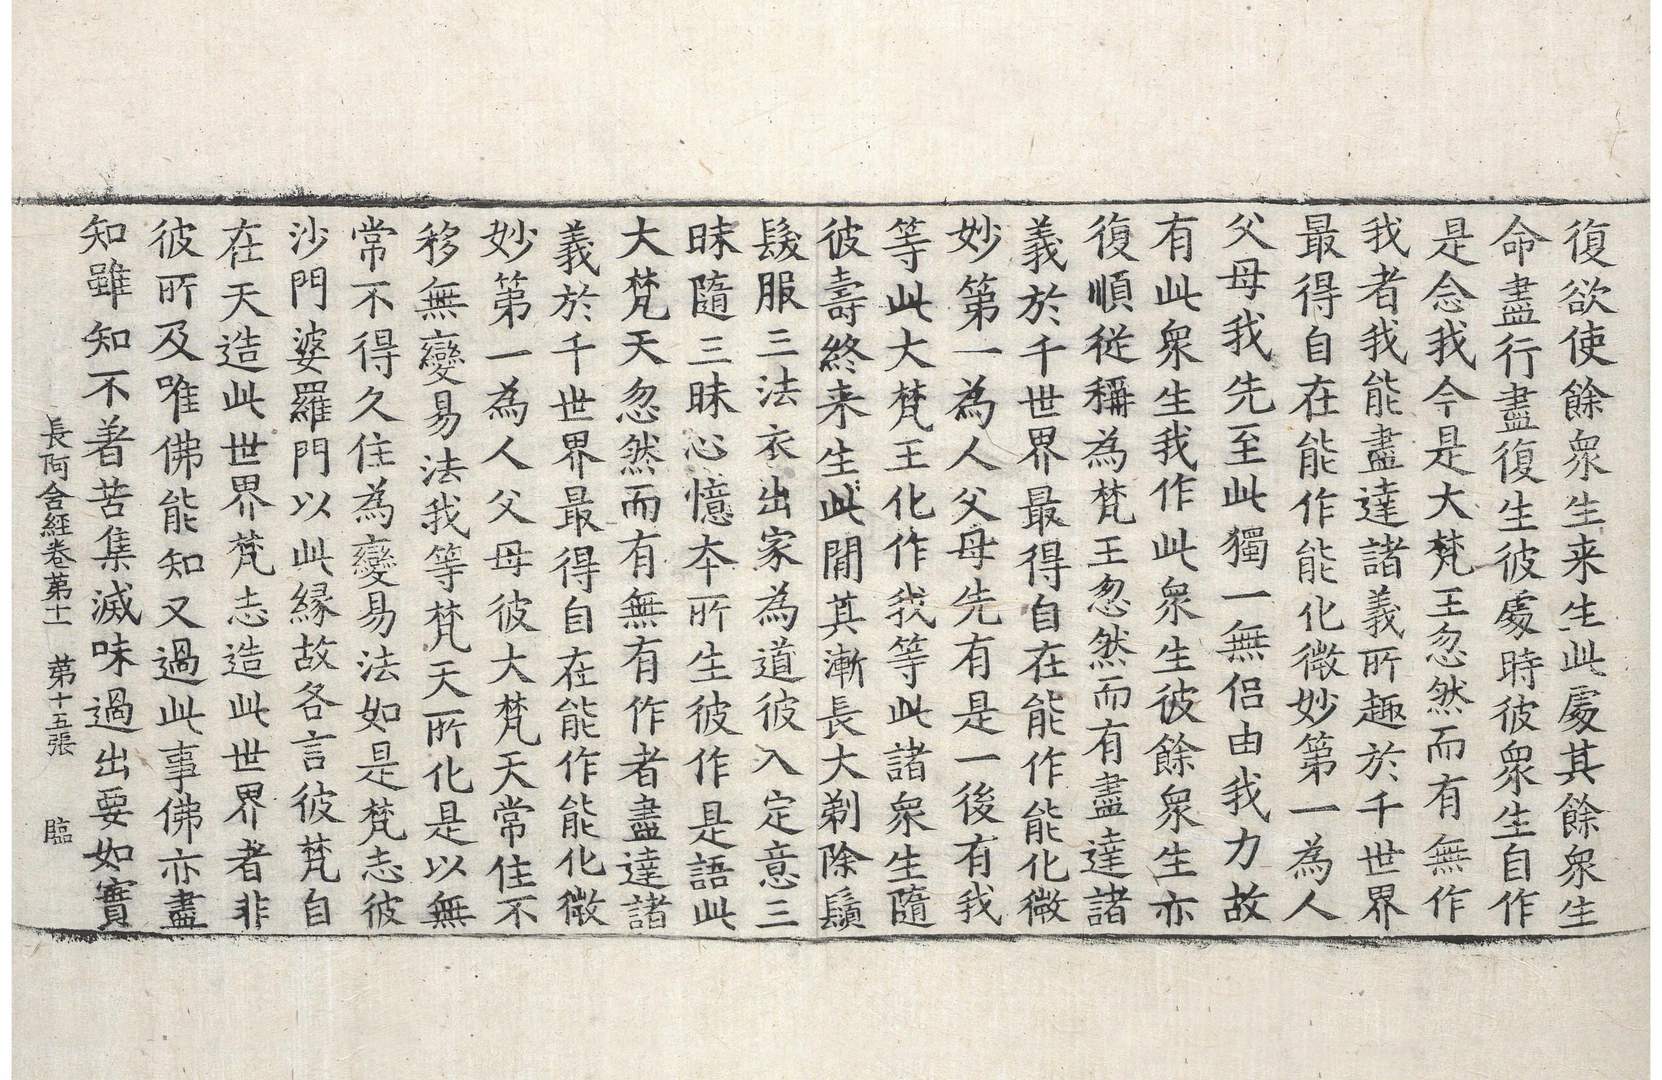 復欲使餘衆生来生此處其餘衆生
命盡行盡復生彼處時彼衆生自作
是念我今是大梵王忽然而有無作
我者我能盡達諸義所趣於千世界
最得自在能作能化微妙第一為人
父母我先至此獨一無侶由我力故
有此衆生我作此衆生彼餘衆生亦
復順從稱為梵王忽然而有盡達諸
義於千世界最得自在能作能化微
妙第一為人父母先有是一後有我
等此大梵王化作我等此諸衆生隨
彼壽終来生此間其漸長大剃除鬚
髮服三法衣出家為道彼入定意三
昧隨三昧心憶本所生彼作是語此
大梵天忽然而有無有作者盡達諸
義於千世界最得自在能作能化微
妙第一為人父母彼大梵天常住不
移無變易法我等梵天所化是以無
常不得久住為變易法如是梵志彼
沙門婆羅門以此縁故各言彼梵自
在天造此世界梵志造此世界者非
彼所及唯佛能知又過此事佛亦盡
知雖知不著苦集滅味過出要如實
長阿含經卷第十一 第十五張 臨